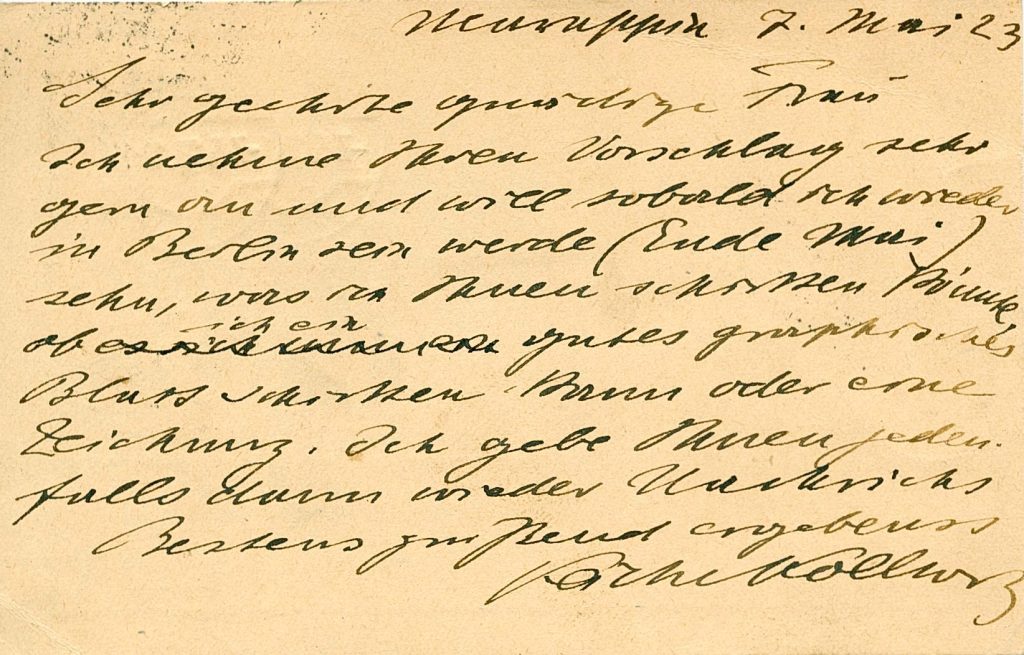 Neuruppin 7. Mai 23
Sehr geehrte gnädige Frau
Ich nehme Ihren Vorschlag sehr
gern an und will sobald ich wieder
in Berlin sein werde (Ende Mai)
sehn, was ich Ihnen schicken könnte,
ob ich ein gutes graphisches
Blatt schicken kann oder eine
Zeichnung. Ich gebe Ihnen jeden-
falls dann wieder Nachricht
Bestens grüßend ergebenst
Käthe Kollwitz